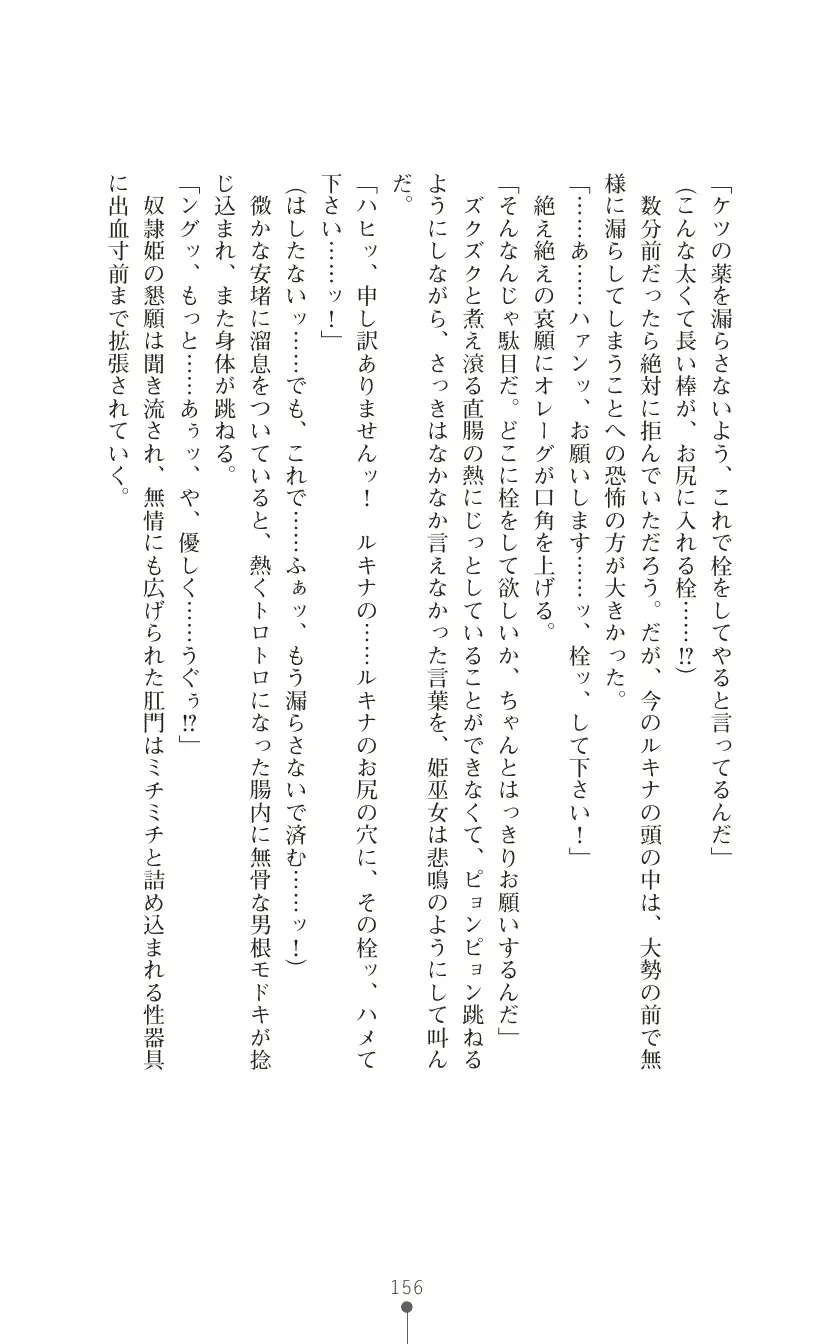 「ケツの薬を漏らさないよう、これで栓をしてやると言ってるんだ」
(こんな太くて長い棒が、お尻に入れる栓……!?)
　数分前だったら絶対に拒んでいただろう。だが、今のルキナの頭の中は、大勢の前で無
様に漏らしてしまうことへの恐怖の方が大きかった。
「……あ……ハァンッ、お願いします……ッ、栓ッ、して下さい！」
　絶え絶えの哀願にオレーグが口角を上げる。
「そんなんじゃ駄目だ。どこに栓をして欲しいか、ちゃんとはっきりお願いするんだ」
　ズクズクと煮え滾る直腸の熱にじっとしていることができなくて、ピョンピョン跳ねる
ようにしながら、さっきはなかなか言えなかった言葉を、姫巫女は悲鳴のようにして叫ん
だ。
「ハヒッ、申し訳ありませんッ！　ルキナの……ルキナのお尻の穴に、その栓ッ、ハメて
下さい……ッ！」
(はしたないッ……でも、これで……ふぁッ、もう漏らさないで済む……ッ！)
　微かな安堵に溜息をついていると、熱くトロトロになった腸内に無骨な男根モドキが捻
じ込まれ、また身体が跳ねる。
「ングッ、もっと……あぅッ、や、優しく……うぐぅ!?」
　奴隷姫の懇願は聞き流され、無情にも広げられた肛門はミチミチと詰め込まれる性器具
に出血寸前まで拡張されていく。
156